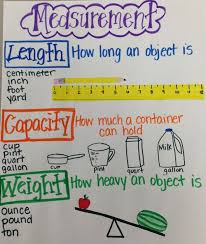 Measurement
Length How long an object is
centimeter
inch
foot
yard
Capacity How much a container
can hold
cup
pint
quart
gallon
cup
pint
quart
Milk
gallon
Weight How heavy an object is
ounce
pound
ton